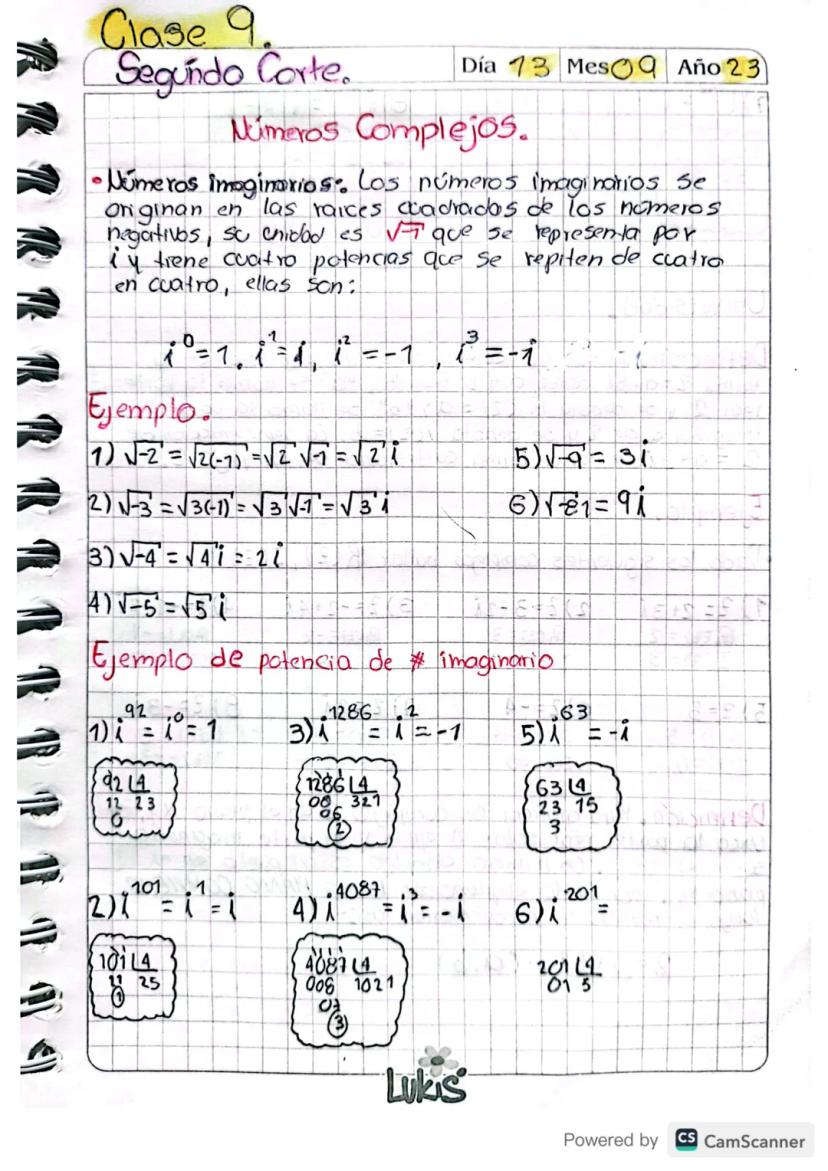 Clase 9.
Segundo Corte. Día 13 Mes 09 Año 23
Números Complejos.
• Números imaginarios: Los números imaginarios se
originan en las raices cuadradas de los números
negativos, su unidad es √-1 que se representa por
i y tiene cuatro potencias que se repiten de cuatro
en cuatro, ellas son:
i⁰ = 1, i¹ = i, i² = -1, i³ = -i
Ejemplo.
1) √-2 = √2(-1) = √2 √-1 = √2 i 5) √-9 = 3i
2) √-3 = √3(-1) = √3 √-1 = √3 i 6) √-81 = 9i
3) √-4 = √4 i = 2i
4) √-5 = √5 i
Ejemplo de potencia de # imaginario
1) i⁹² = i⁰ = 1 3) i¹²⁸⁶ = i² = -1 5) i⁶³ = -i
92 4 1286 4 63 4
12 23 08 321 23 15
0 06 3
2
2) i¹⁰¹ = i¹ = i 4) i⁴⁰⁸⁷ = i³ = -i 6) i²⁰¹ =
101 4 4087 4 201 4
21 25 008 1021 01 5
1 07
3
Lukis
Powered by CS CamScanner